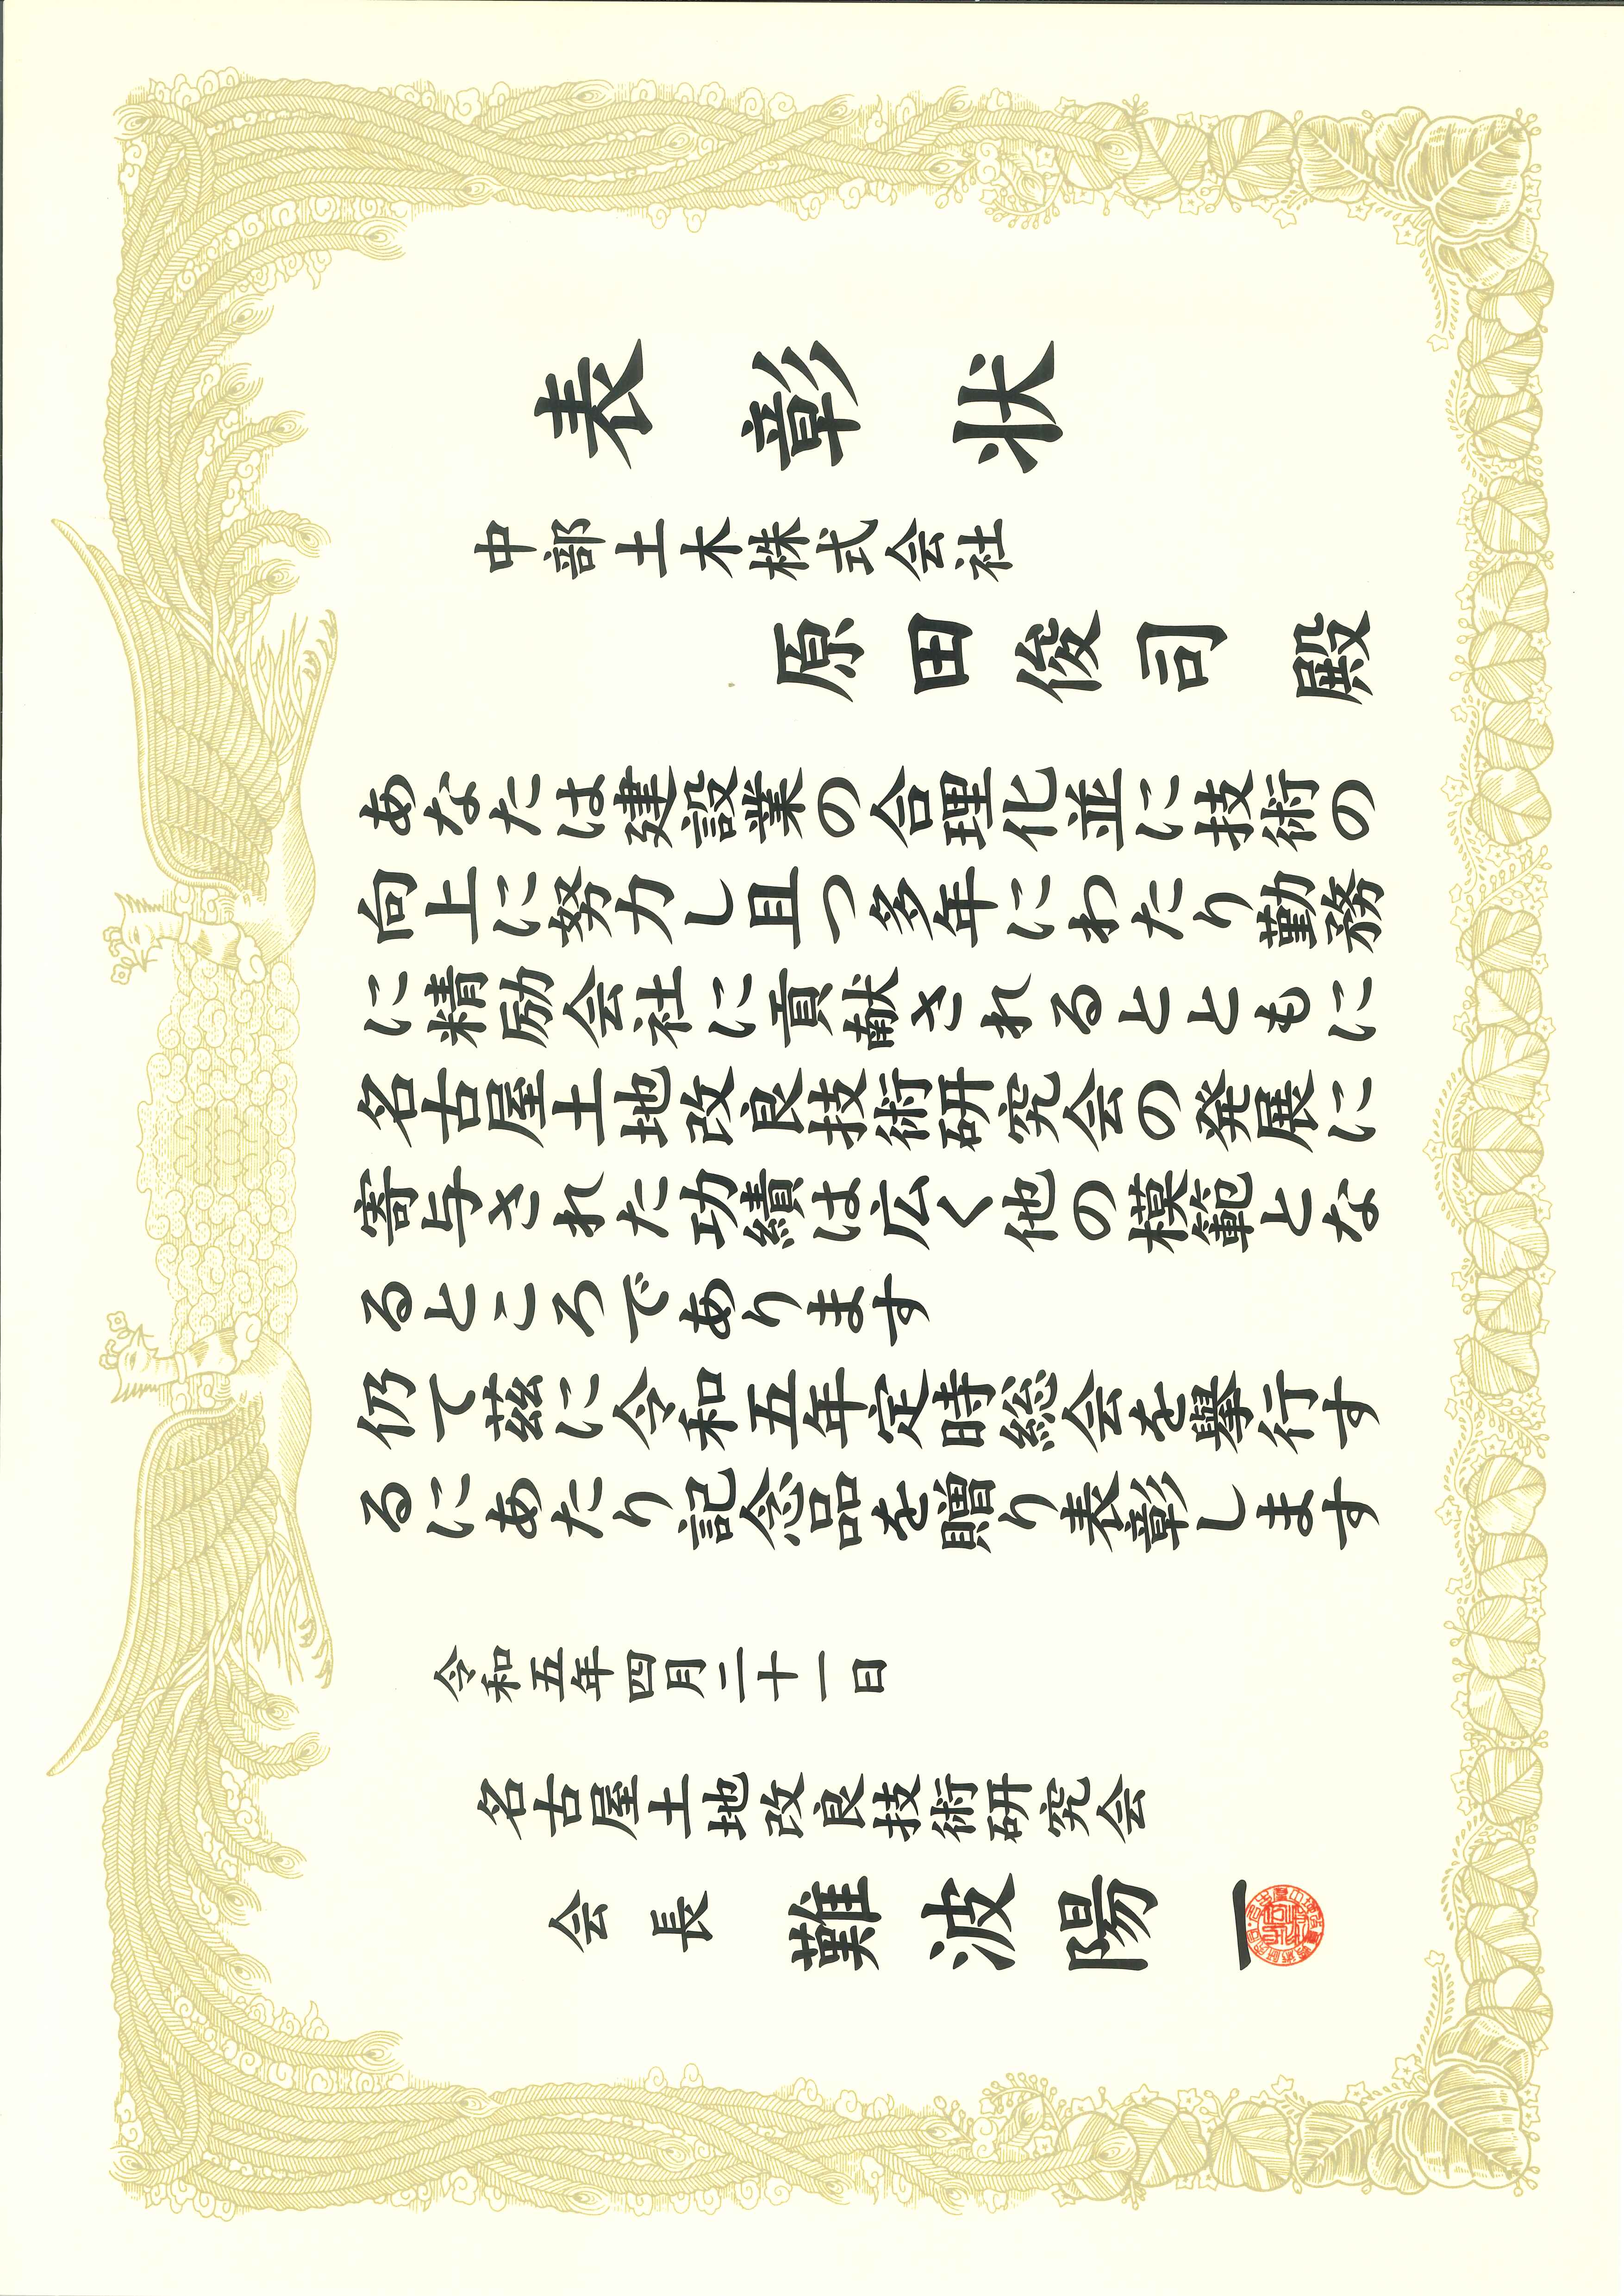 表彰状
中部土木株式会社
原田俊司 殿
あなたは建設業の合理化並に技術の
向上に努力し且つ多年にわたり勤務
に精励会社に貢献されるとともに
名古屋土地改良技術研究会の発展に
寄与された功績は広く他の模範とな
るところであります
仍て茲に令和五年定時総会を挙行す
るにあたり記念品を贈り表彰します
令和五年四月二十一日
名古屋土地改良技術研究会
会長 難波陽一